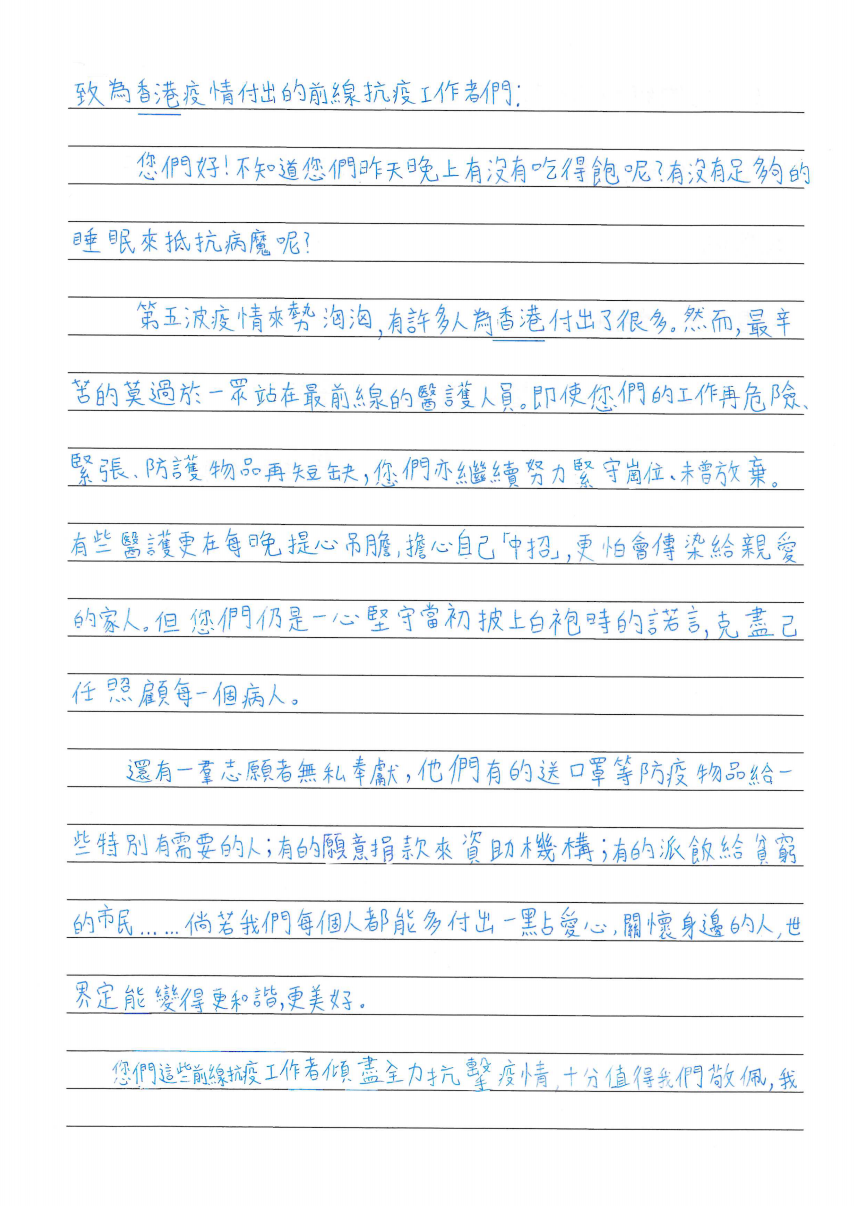 致為香港疫情付出的前線抗疫工作者們:
您們好!不知道您們昨天晚上有沒有吃得飽呢?有沒有足夠的
睡眠來抵抗病魔呢?
第五波疫情來勢洶洶,有許多人為香港付出了很多。然而,最辛
苦的莫過於一眾站在最前線的醫護人員。即使您們的工作再危險、
緊張、防護物品再短缺,您們亦繼續努力緊守崗位、未曾放棄。
有些醫護更在每晚提心吊膽,擔心自己「中招」,更怕會傳染給親愛
的家人。但您們仍是一心堅守當初披上白袍時的諾言,克盡己
任照顧每一個病人。
還有一羣志願者無私奉獻,他們有的送口罩等防疫物品給一
些特別有需要的人;有的願意捐款來資助機構;有的派飯給貧窮
的市民……倘若我們每個人都能多付出一點愛心,關懷身邊的人,世
界定能變得更和諧,更美好。
您們這些前線抗疫工作者傾盡全力抗擊疫情,十分值得我們敬佩,我